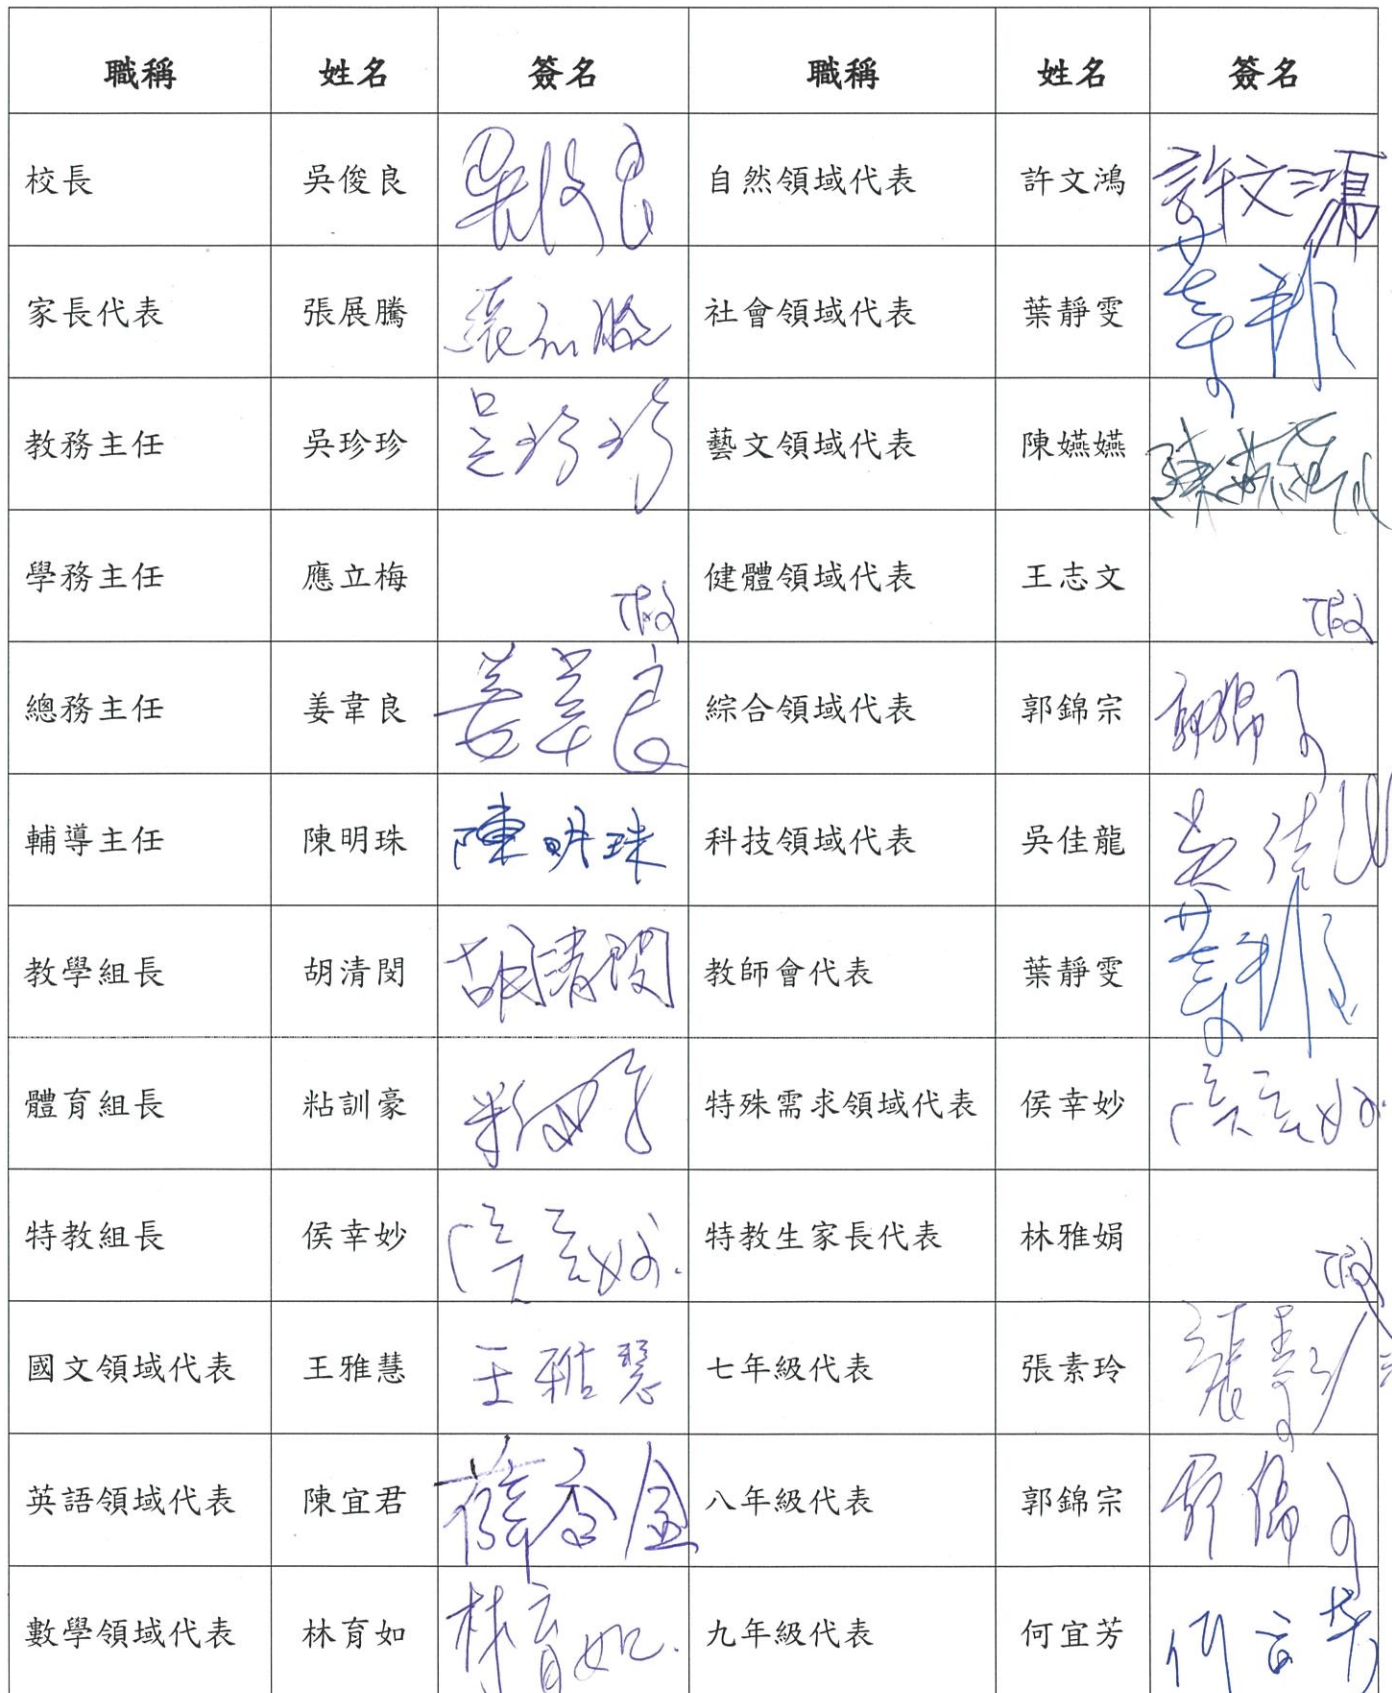 職稱 姓名 簽名 職稱 姓名 簽名
校長 吳俊良 吳俊良 自然領域代表 許文鴻 許文鴻
家長代表 張展騰 張 社會領域代表 葉靜雯 葉
教務主任 吳珍珍 吳珍珍 藝文領域代表 陳嬿嬿 陳嬿
學務主任 應立梅 假 健體領域代表 王志文 假
總務主任 姜韋良 姜韋良 綜合領域代表 郭錦宗 郭錦宗
輔導主任 陳明珠 陳明珠 科技領域代表 吳佳龍 吳佳
教學組長 胡清閔 胡清閔 教師會代表 葉靜雯 葉
體育組長 粘訓豪 特殊需求領域代表 侯幸妙 侯幸妙
特教組長 侯幸妙 侯幸妙 特教生家長代表 林雅娟 假
國文領域代表 王雅慧 王雅慧 七年級代表 張素玲 張素玲
英語領域代表 陳宜君 薛香金 八年級代表 郭錦宗 郭錦宗
數學領域代表 林育如 林育如 九年級代表 何宜芳 何宜芳